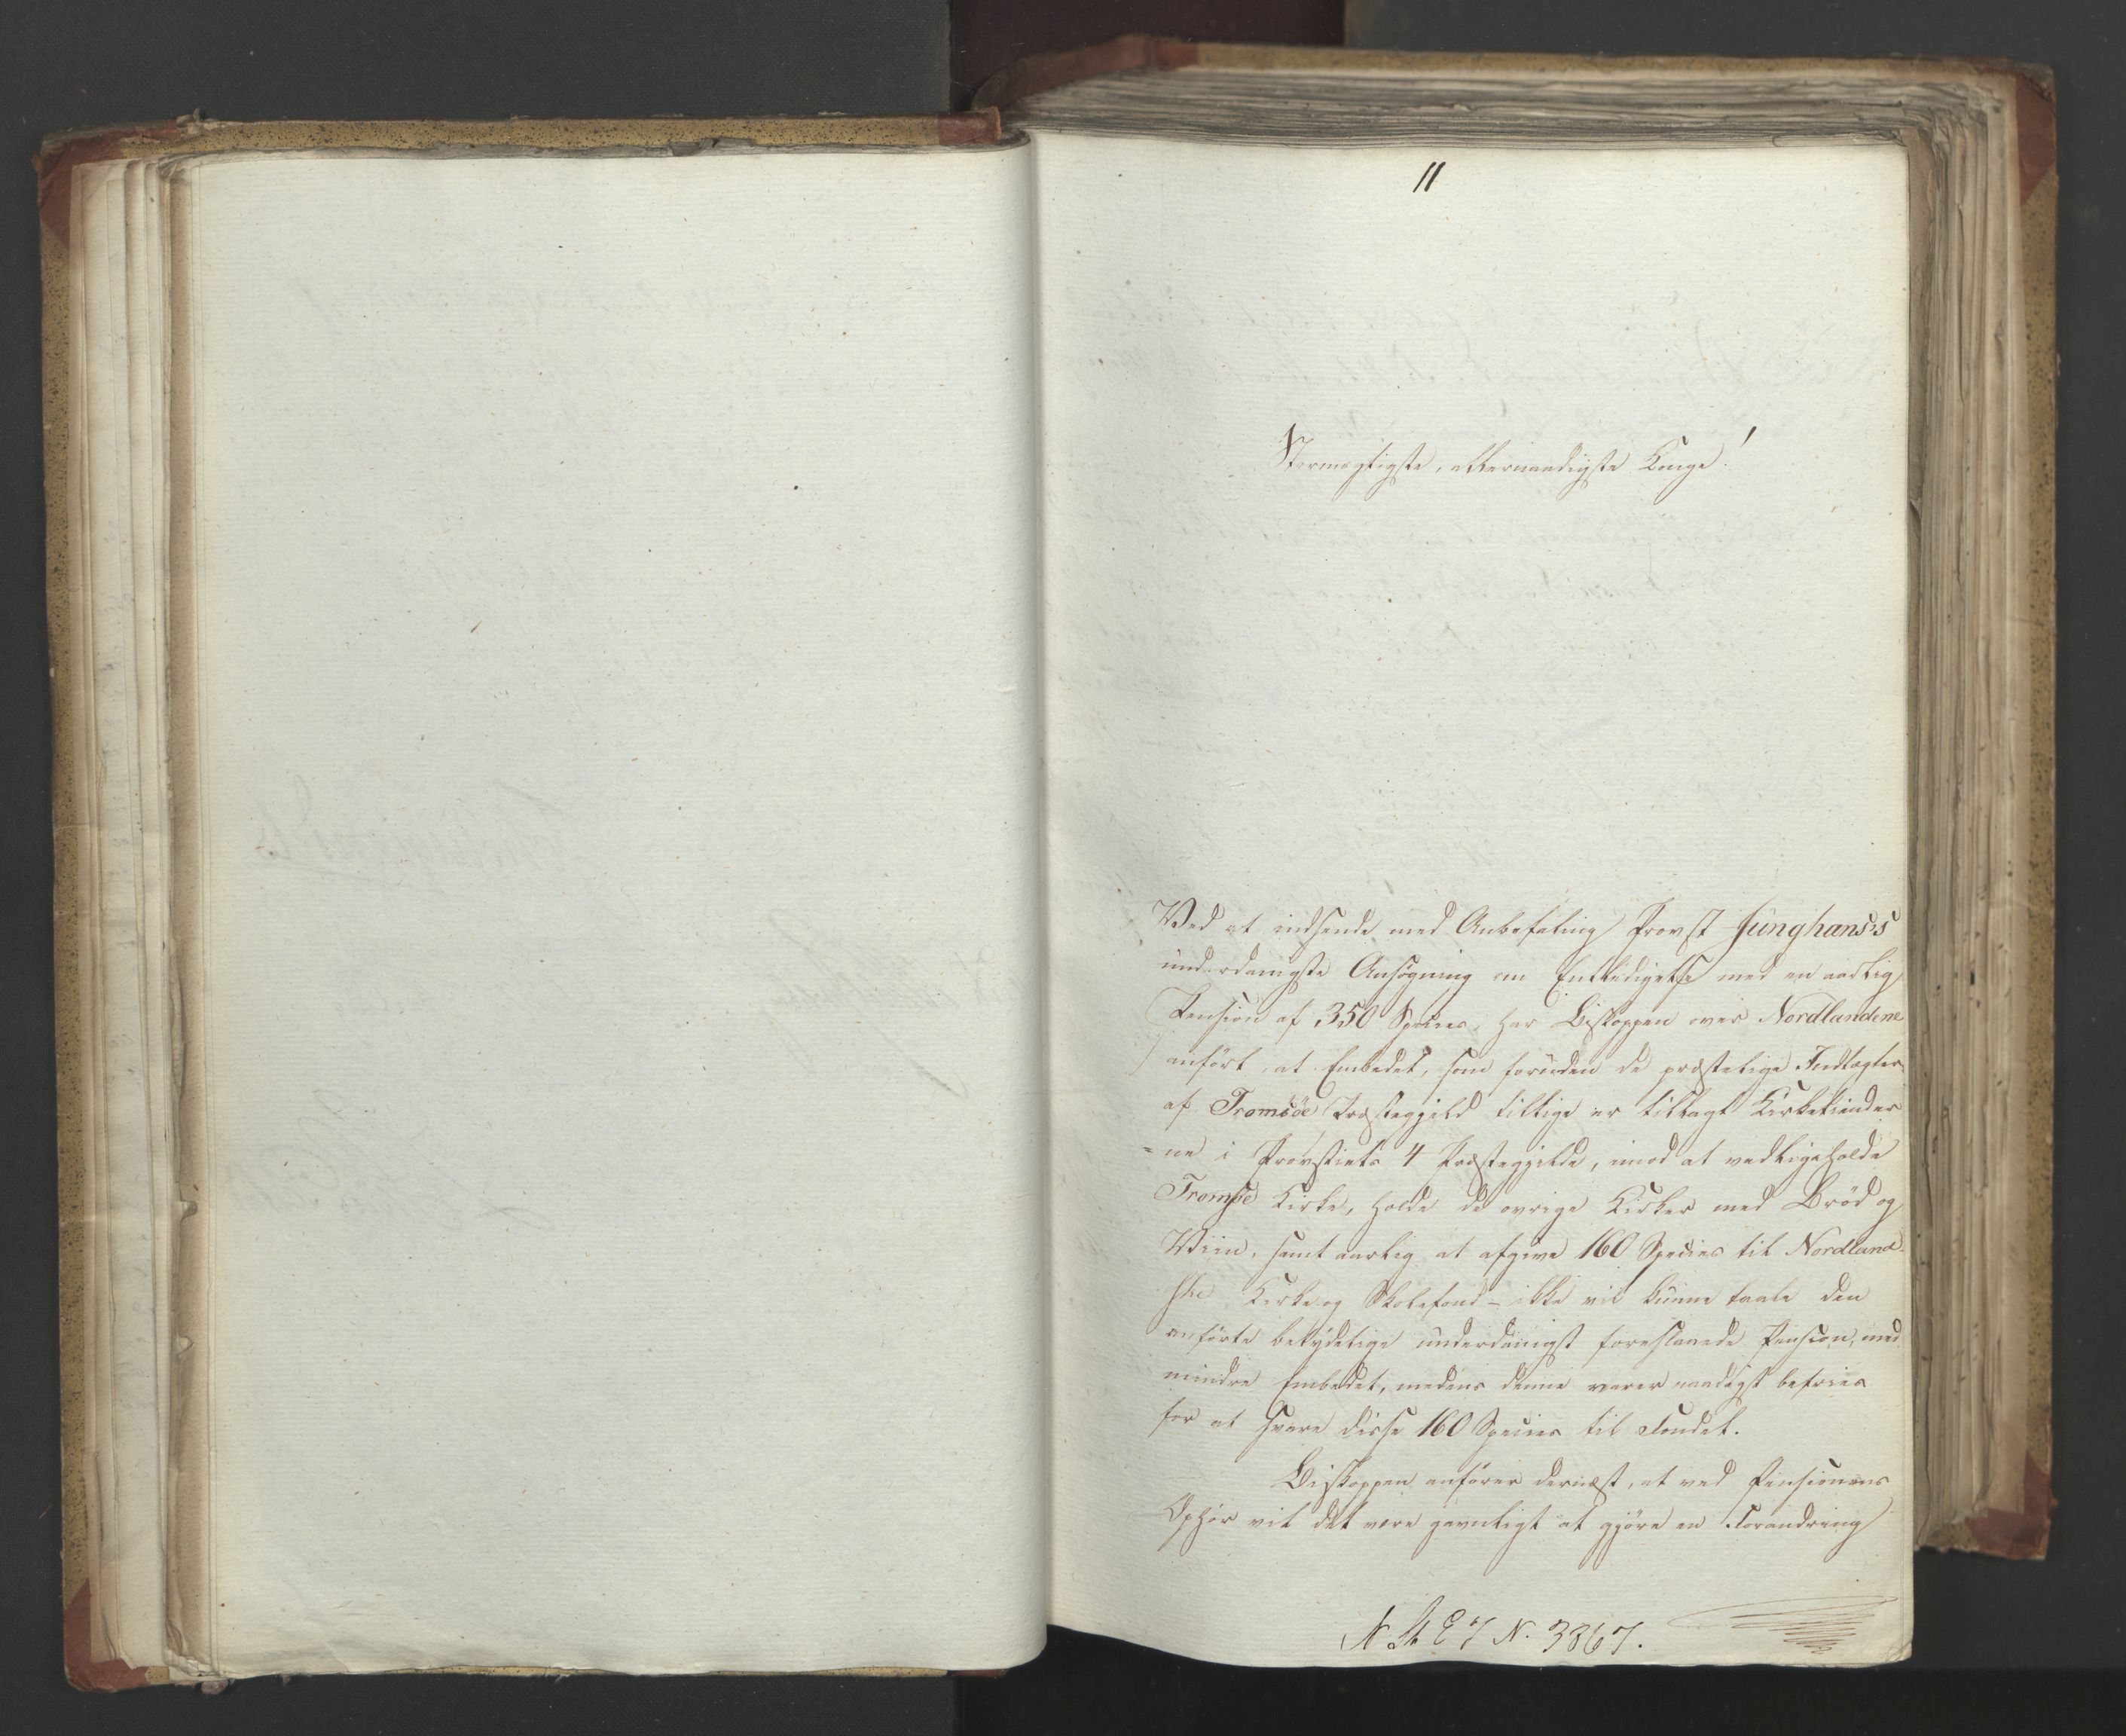 11
Stormægtigste, allernaadigste Konge!
Ved at indsende med Anbefaling Provst Junghans's
underdanigste Ansögning om Entledigelse med en aarlig
Pension af 350 Species, har Biskoppen over Nordlandene
anfört, at Embedet, som foruden de præstelige Indtægter
af Tromsöe Præstegjeld tillige er tillagt Kirketiender
=ne i Provstiets 4 Præstegjelde, imod at vedligeholde
Tromsöe Kirke, holde de övrige Kirker med Bröd og
Viin, samt aarlig at afgive 160 Species til Nordland-
ske Kirke og Skolefond - ikke vil kunne taale den
anförte betydelige underdanigst foreslaaede Pension, med
mindre Embedet, medens denne varer naadigst befries
for at svare disse 160 Species til Fondet.
Biskoppen anförer dernæst, at ved Pensionens
Ophör vil det være gavnligt at gjöre en Forandring
N. 3867.